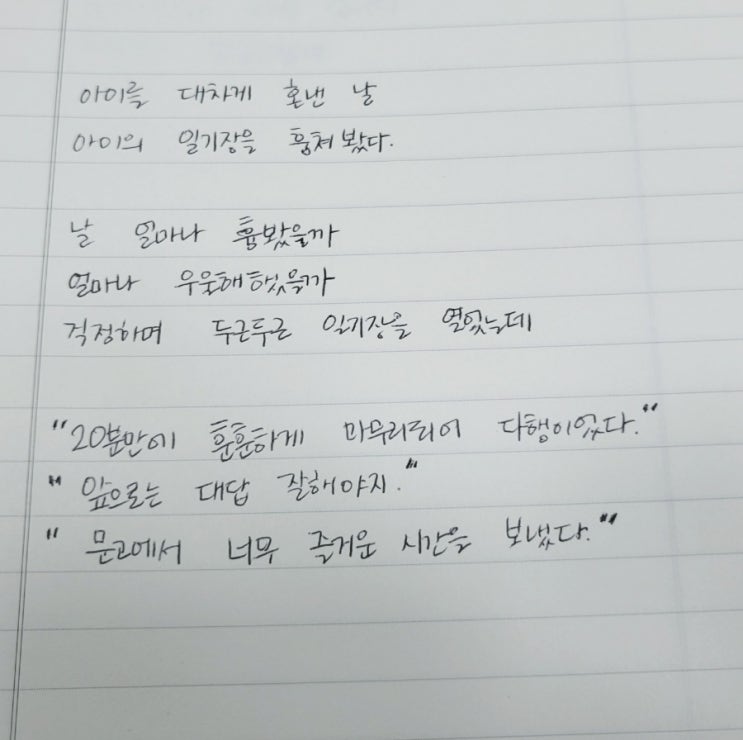 아이를 대차게 혼낸 날
아이의 일기장을 훔쳐봤다.
날 얼마나 흉봤을까
얼마나 우울해했을까
걱정하며 두근두근 일기장을 열었는데
"20분만에 훈훈하게 마무리되어 다행이었다."
"앞으로는 대답 잘해야지."
"문고에서 너무 즐거운 시간을 보냈다."